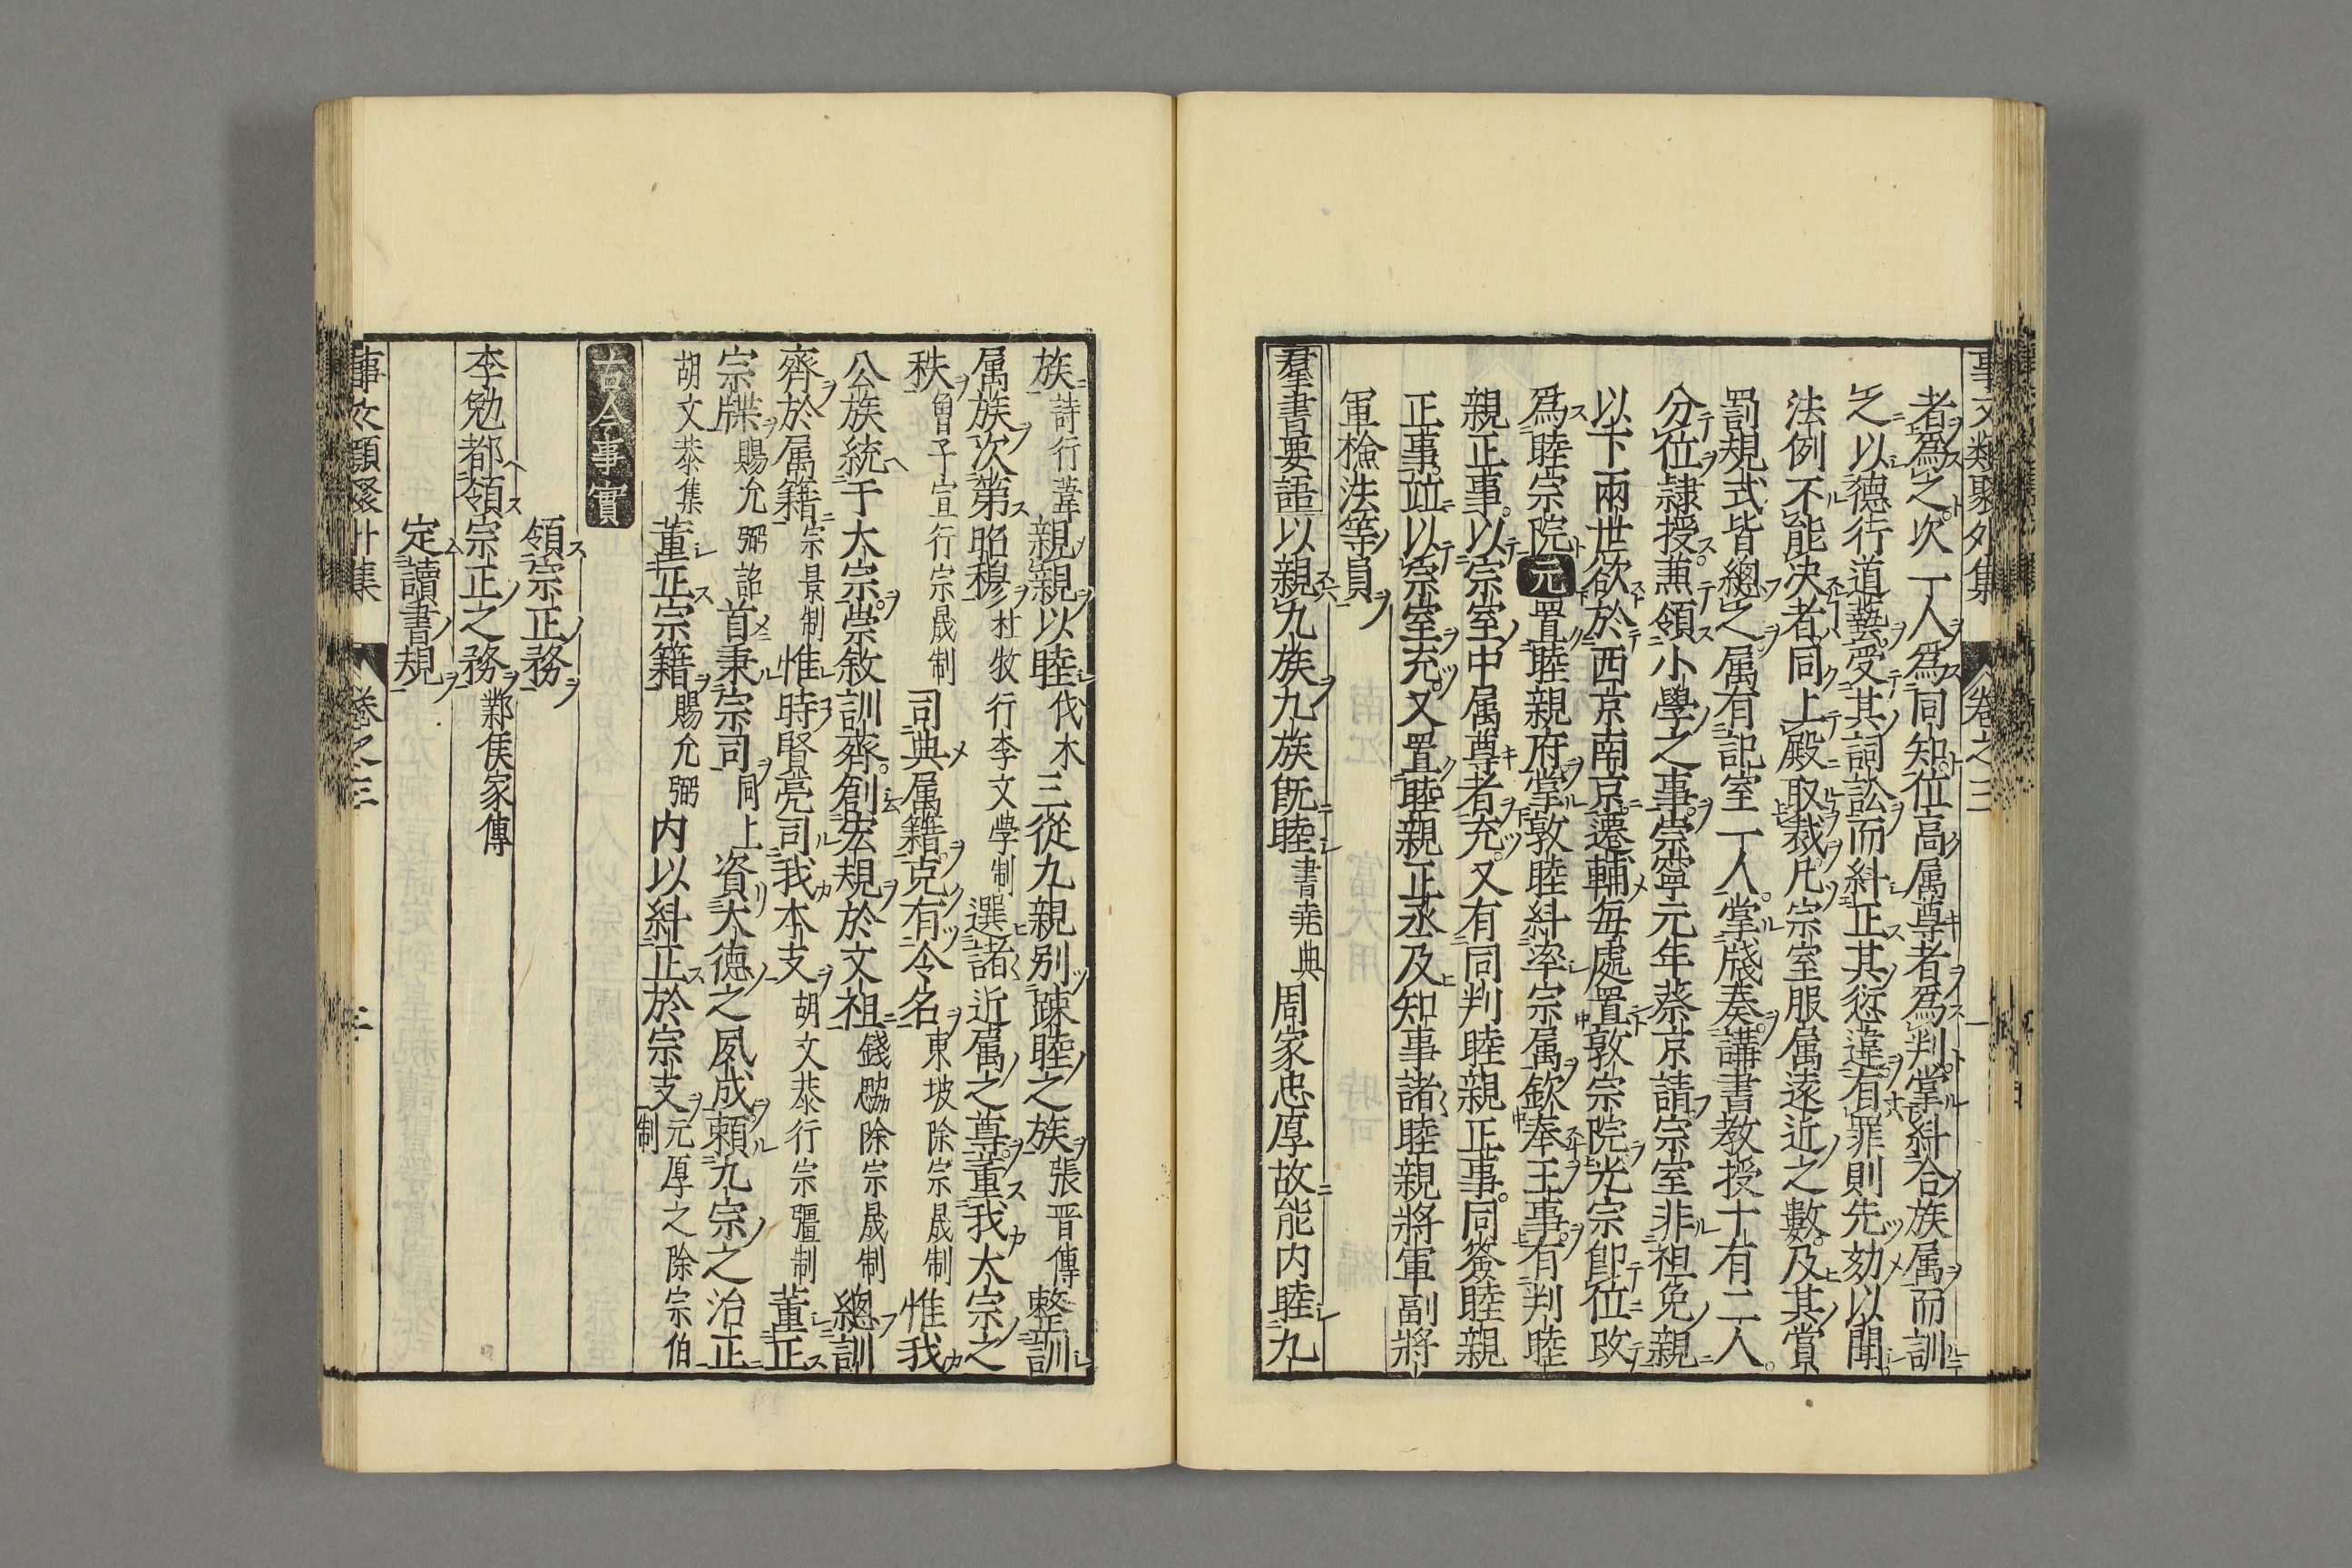 事文類聚外集 卷之三
者爲之次一人爲同知位高属尊者爲判掌糾合族属而訓
之以德行道藝受其詞訟而糾正其愆違有罪則先劾以聞
法例不能決者同上殿取裁凡宗室服属遠近之數及其賞
罰規式皆總之属有記室一人掌牋奏講書教授十有二人
分位隷授兼領小學之事崇寧元年蔡京請宗室非祖免親
以下兩世欲於西京南京遷輔每處置敦宗院光宗卽位改
爲睦宗院元置睦親府掌敦睦糾率宗属欽奉王事有判睦
親正事以宗室中属尊者充又有同判睦親正事同簽睦親
正事竝以宗室充又置睦親正丞及知事諸睦親將軍副將
軍檢法等員
羣書要語以親九族九族旣睦書堯典周家忠厚故能内睦九
族詩行葦親親以睦伐木三從九親別疎睦之族張晋傳整訓
属族次第昭穆杜牧行李文學制選諸近属之尊董我太宗之
秩曾子宣行宗晟制司典属籍克有令名東坡除宗晟制惟我
公族統于大宗崇敘訓齊創宏規於文祖錢勰除宗晟制總訓
齊於属籍宗景制惟時賢亮司我本支胡文恭行宗彊制董正
宗牒賜允弼詔首秉宗司同上資大德之夙成賴九宗之治正
胡文恭集董正宗籍賜允弼内以糾正於宗支元厚之除宗伯制
古今事實
領宗正務
李勉都領宗正之務鄴侯家傳
定讀書規
事文類聚外集 卷之三 二